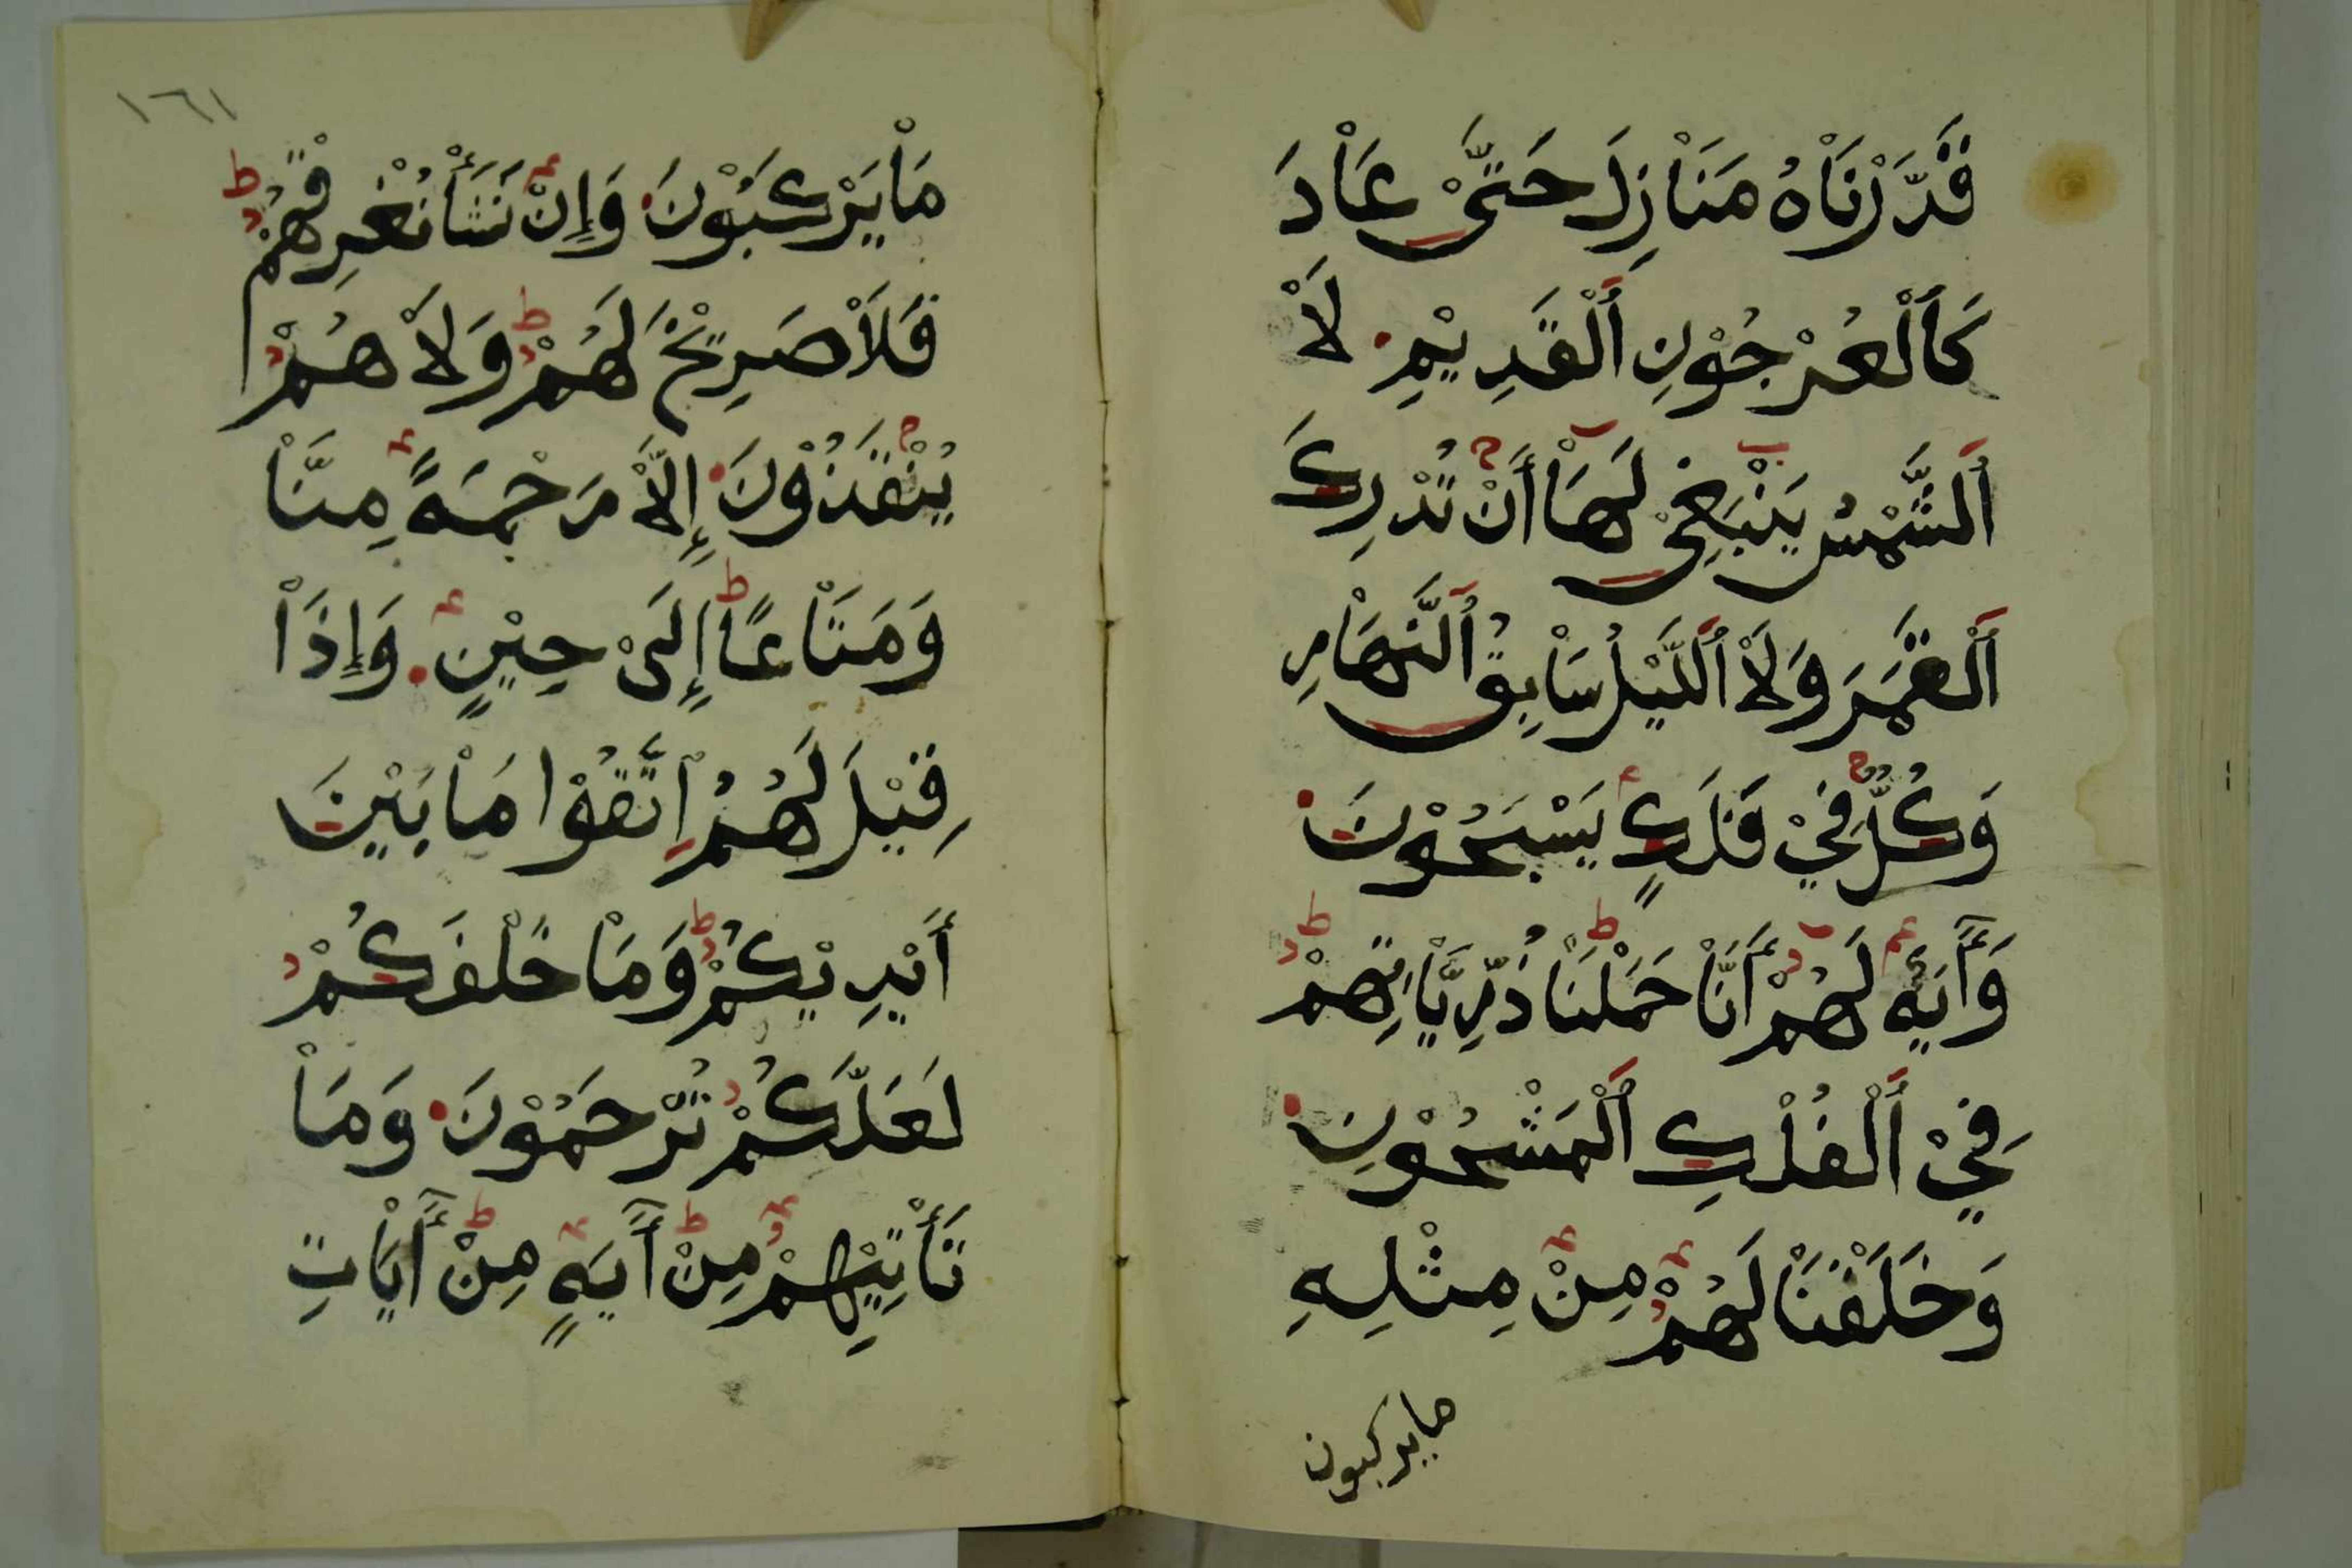 قَدَّرْنَاْهُ مَنَاْزِلَ حَتَّىْ عَاْدَ
كَاَلْعُرْجُوْنِ اَلْقَدِيْمِ لَاْ
اَلشَّمْسُ يَنْبَغِيْ لَهَاْ أَنْ تُدْرِكَ
اَلْقَمَرَ وَلَاْ اَللَّيْلُ سَاْبِقُ اَلنَّهَاْرِ
وَكُلٌّ فِيْ فَلَكٍ يَسْبَحُوْنَ
وَأَيَةٌ لَهُمْ أَنَّاْ حَمَلْنَاْ ذُرِّيَّاْتِهِمْ
فِيْ اَلْفُلْكِ اَلْمَشْحُوْنِ
وَخَلَقْنَاْ لَهُمْ مِنْ مِثْلِهِ
مايركبون
١٦١
مَاْ يَرْكَبُوْنَ وَإِنْ نَشَأْ نُغْرِقْهُمْ
فَلَاْ صَرِيْخَ لَهُمْ وَلَاْ هُمْ
يُنْقَذُوْنَ إِلَّاْ رَحْمَةً مِنَّاْ
وَمَتَاْعًا إِلَىْ حِيْنٍ وَإِذَاْ
قِيْلَ لَهُمُ اِتَّقُوْا مَاْ بَيْنَ
أَيْدِيْكُمْ وَمَاْ خَلْفَكُمْ
لَعَلَّكُمْ تُرْحَمُوْنَ وَمَاْ
تَأْتِيْهِمْ مِنْ أَيَةٍ مِنْ أَيَاْتِ